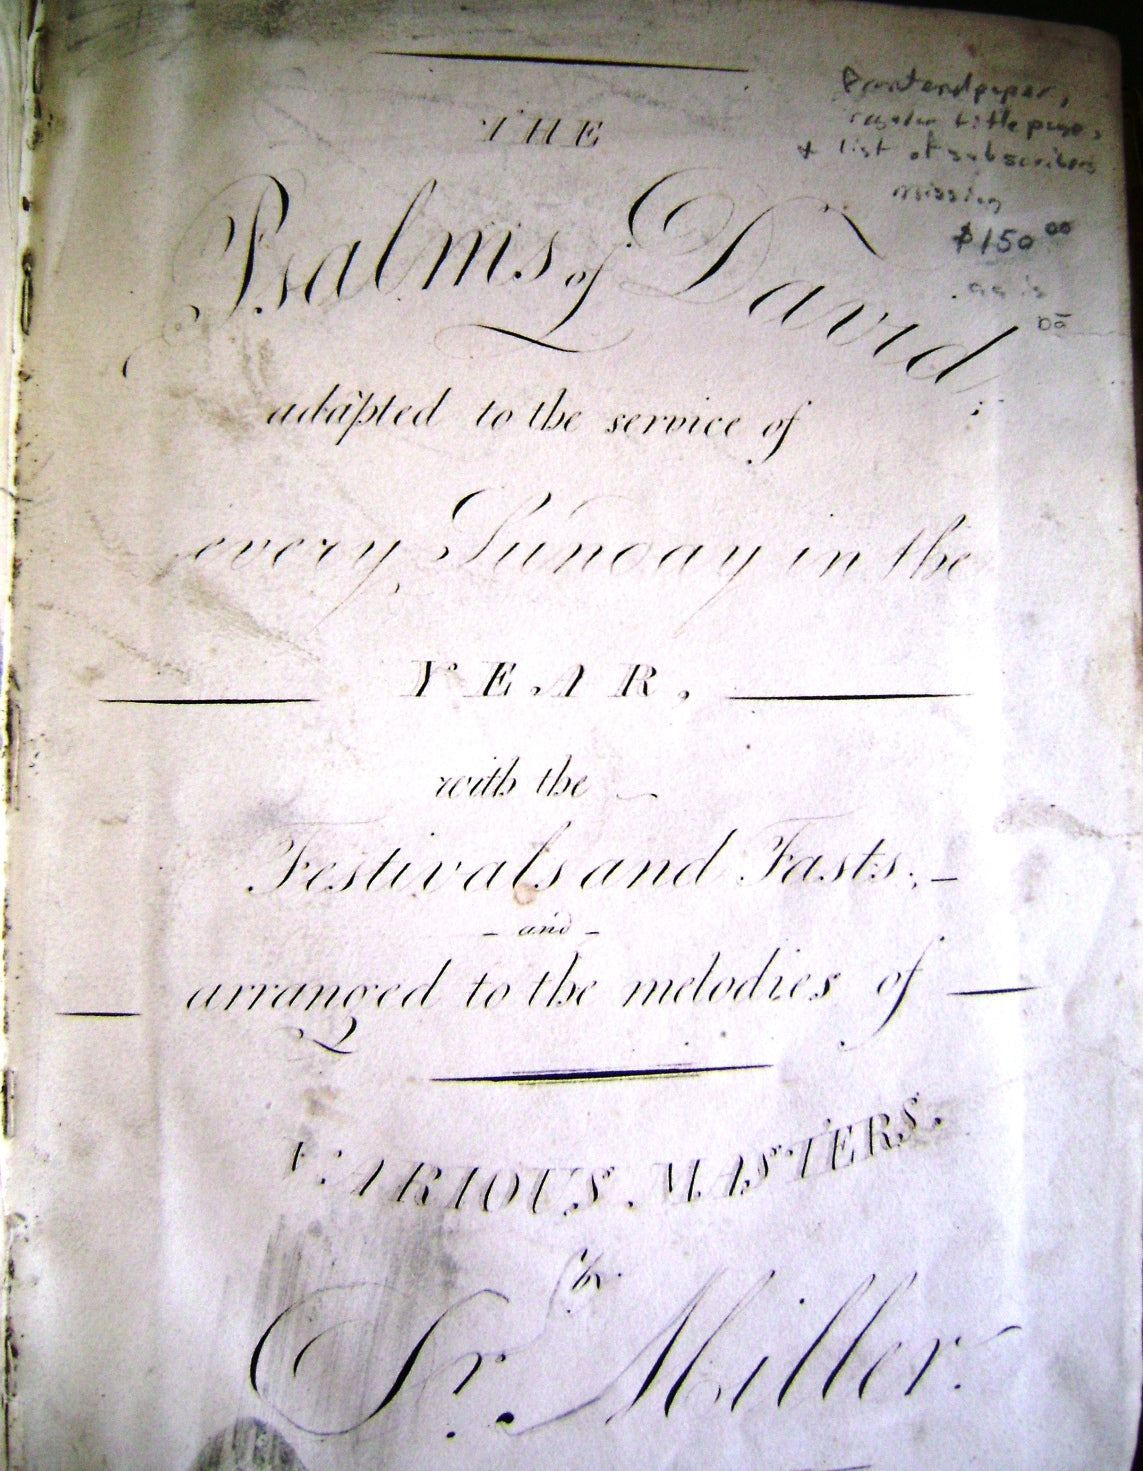 THE
Psalms of David
adapted to the service of
every Sunday in the
YEAR,
with the
Festivals and Fasts;
- and -
arranged to the melodies of
VARIOUS MASTERS.
by
Miller.
Front endpaper,
regular title page,
+ list of subscribers
missing
$150 00
as is